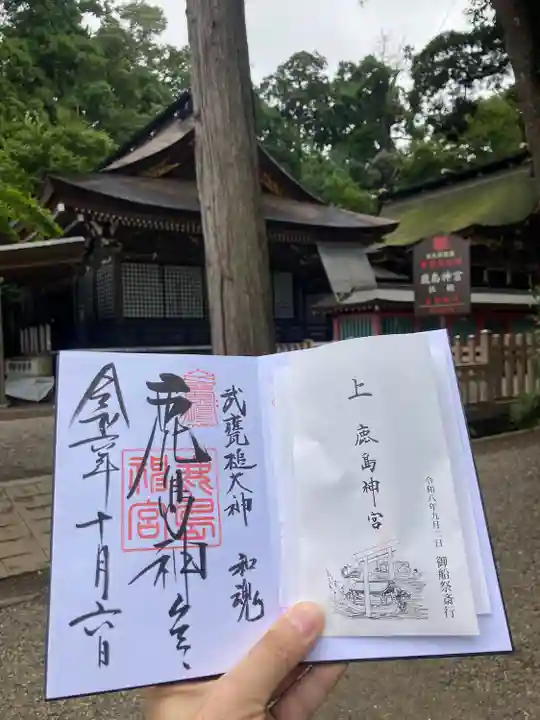 武甕槌大神 和魂
鹿島神宮
鹿島神宮
令和六年十月六日
上
鹿島神宮
令和八年九月二日 御船祭斎行
鹿島神宮